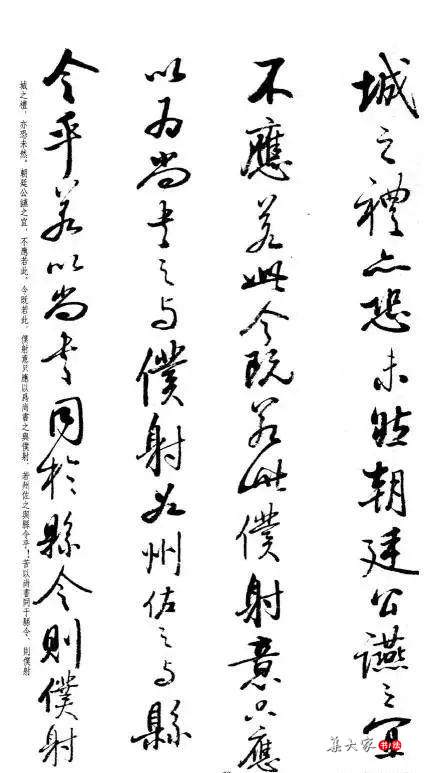 城之禮亦恐未然朝廷公讌之宜
不應若此今既若此僕射意只應
以為尚書之与僕射若州佐之与縣
令乎若以尚書同於縣令則僕射
城之禮，亦恐未然。朝廷公讌之宜，不應若此。今既若此，僕射意只應以爲尚書之與僕射，若州佐之與縣令乎！若以尚書同于縣令，則僕射
集大家 书法